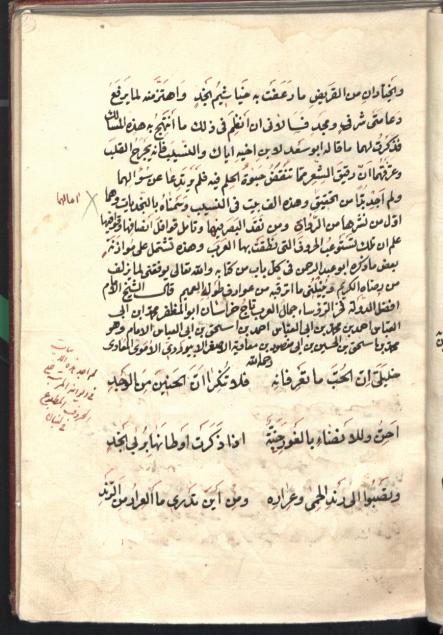 ولجتا دان من القريض ما رعفت به حنيا شيم المجد واهتز منه لما يرفع
دعامتي شرف ومجد فسالاني ان انظم في ذلك ما انتهج به هذه المسالك
فذكرت لهما ما قاله ابو سعد لابن اخيه اياك والنسيب فانه يجرح القلب
وعرفتهما ان رقيق الشعر مما تنتقض حبوة الحليم فيه فلم يرتدعا عن سؤالهما
ولم اجد بدا من تحقيق وهذه الف بيت في النسيب وسمتاه بالنجديات وهما
اول من نشرها من الرواة ومن نقد البصير فيها وتامل قوافل
علم ان تلك تستوعب الحروف التي نطقت بها العرب وهذه تشتمل على موازنة
بعض ما ذكره ابو عبد الرحمن في كل باب من كتابه والله تعالى يوفقني لما يزلف
من رضاه الكريم ويبلغني ما اترقبه من عوارف طوله العميم قال الشيخ الامام
افضل الدولة فخر الرؤسا جمال العرب تاج خراسان ابو المظفر محمد بن ابي
العباس احمد بن محمد بن ابي العباس احمد بن اسحق بن ابي العباس الامام وهو
محمد بن اسحق بن الحسين بن ابي منصور بن معاوية الاصغر الابيوردي الاموي المعاوي
رحمه الله
خليلي ان الحب ما تعرفانه فلا تنكرا ان الحنين من الوجد
احن وللانضاء بالغور حنة اذا ذكرت اوطانها بربى نجد
وتصبوا الى رند الحمى وعراره ومن اين تدري ما العرار من الرند